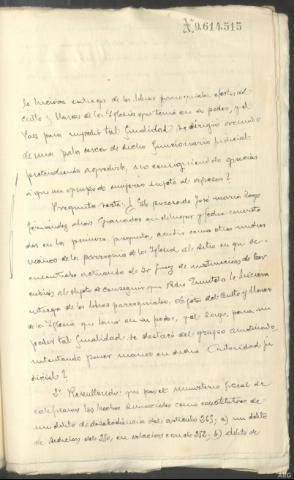 Nº 9.614.515
le hiciera entrega de los libros parroquiales, efectos del
culto y llaves de la Iglesia que tenia en su poder, y el
para impedir tal finalidad se dirigió armado
de una pala cerca de dicho funcionario judicial
pretendiendo agredirlo, no consiguiendolo gracias
a que un grupo de mujeres sujetó al agresor?
Pregunta sexta: ¿El procesado José Maria Lago
Fernández alias Granados en el lugar y fecha concreta
dos en la primera pregunta, acudió como otros muchos
vecinos de la parroquia de la Iglesia al sitio en que se
encontraba actuando de Sr Juez de instrucción de
al objeto de conseguir que Pedro le hiciera
entrega de los libros parroquiales. Objetos del Culto y llaves
de la Iglesia que tenia en su poder, y el Lago, para im
pedir tal finalidad se destacó del grupo amotinado,
intentando poner manos en dicha Autoridad ju
dicial?
2º Resultando: que por el ministerio fiscal se
calificaron los hechos enunciados como constitutivos de
un delito de desobediencia del artículo 263; a) un delito
de sedicion del 250, en relacion con el 252; b) delito de
ARG